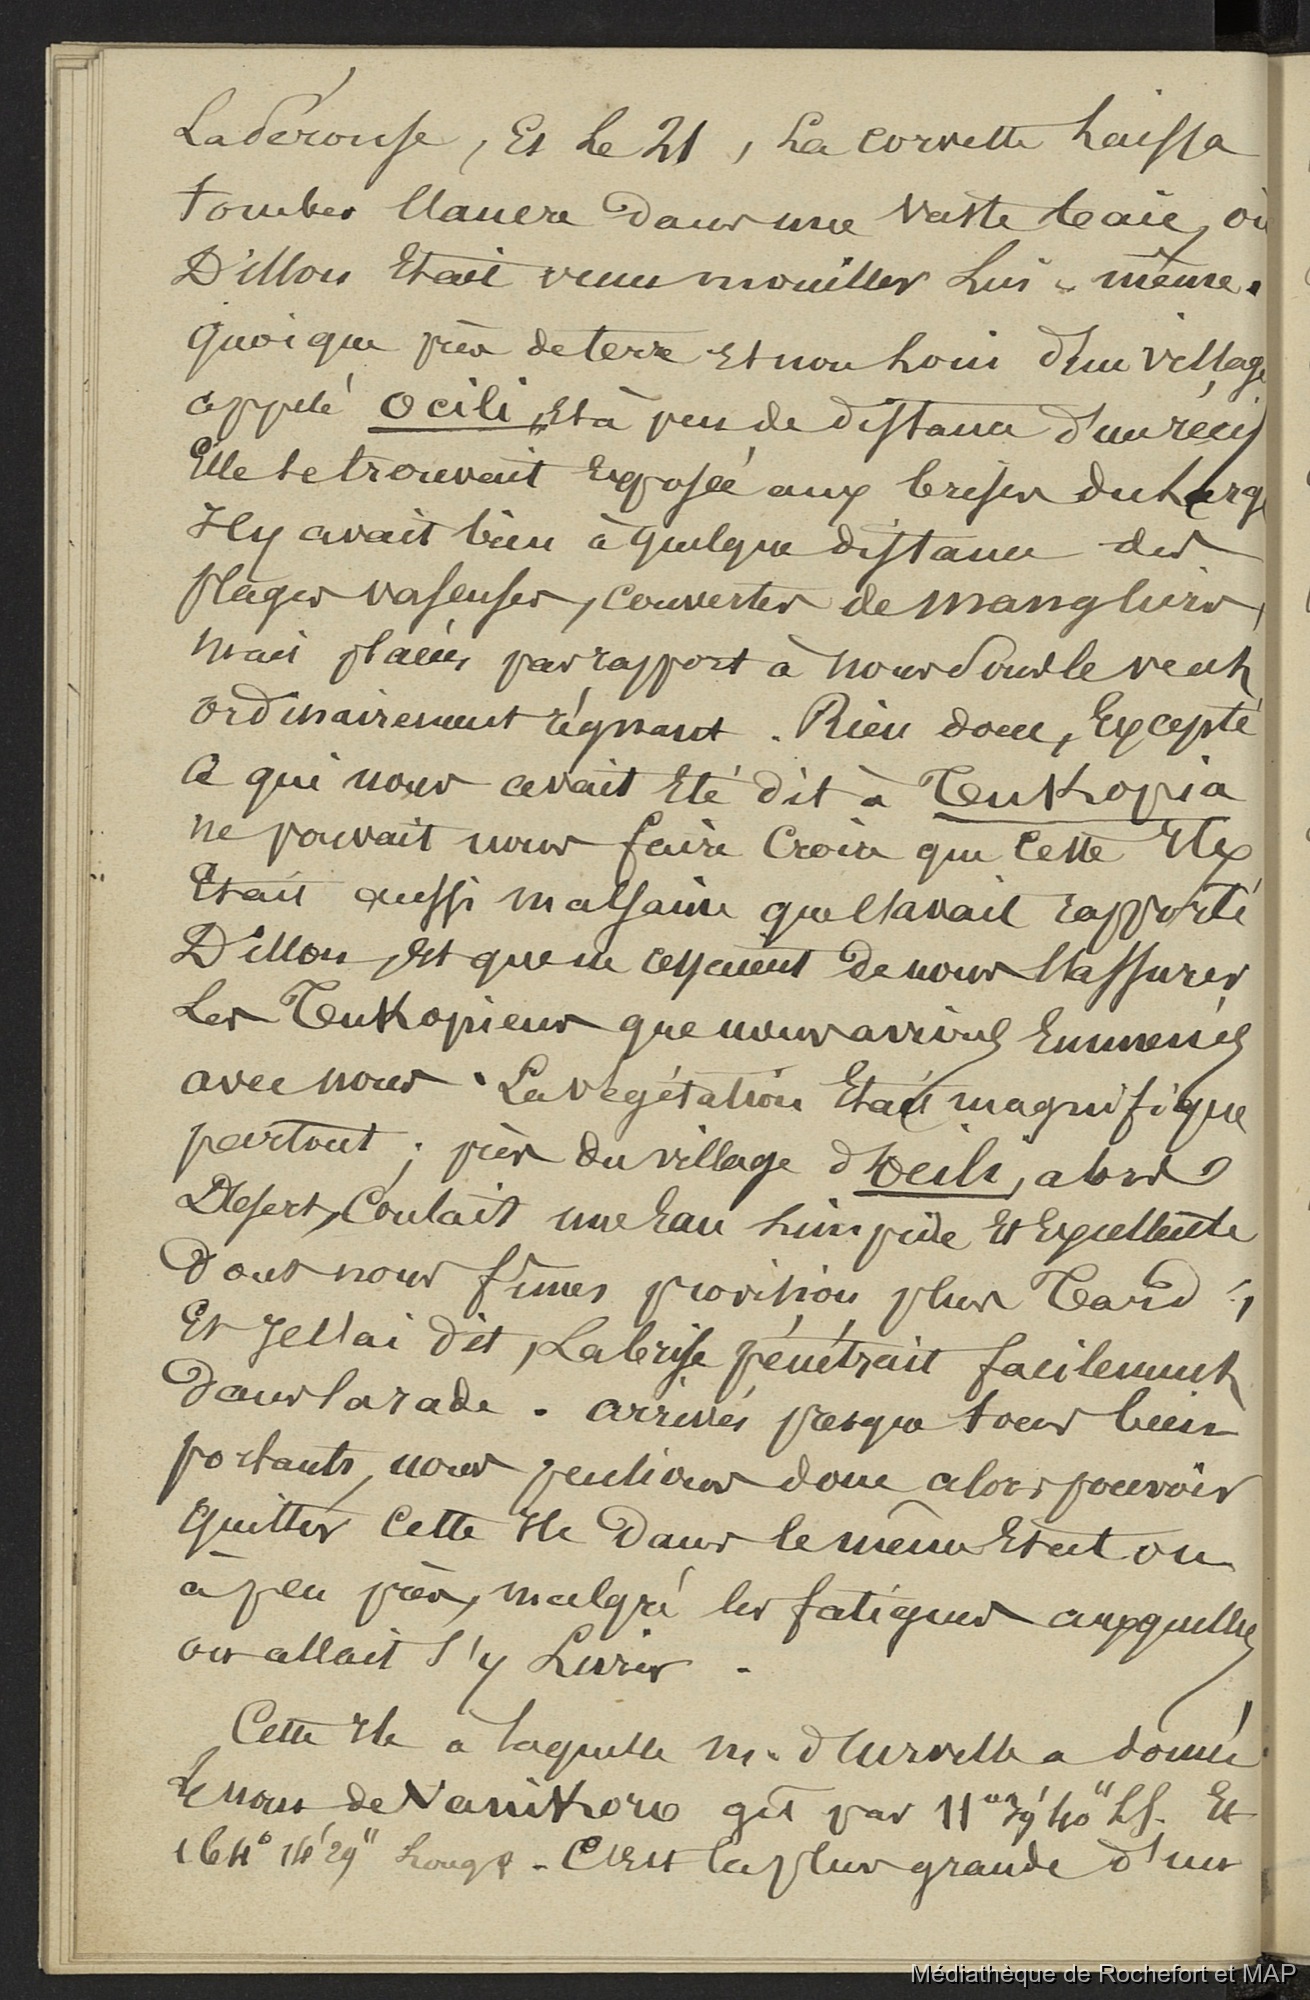 Lapérouse, Et Le 21, La corvette Laissa
tomber l'ancre dans une vaste baie, où
Dillon Etait venu mouiller Lui-même.
Quoique près de terre Et non Loin d'un village
appelé Ocili, Et à peu de distance d'un récif
Elle se trouvait Exposée aux brises du Large
Il y avait bien à quelque distance des
plages vaseuses, couvertes de mangliers,
mais placées par rapport à nous sous le vent
ordinairement régnant. Rien donc, Excepté
ce qui nous avait Eté dit à Tukopia
ne pouvait nous faire Croire que Cette Ile
Etait aussi malsaine que l'avait rapporté
Dillon, Et que ne cessaient de nous l'assurer
Les Tukopiens que nous avions Emmenés
avec nous. La végétation Etait magnifique
partout ; près du village d'Ocili, alors
Désert, Coulait une Eau Limpide Et Excellente
Dont nous fîmes provision plus Tard ;
Et Je l'ai dit, La brise pénétrait facilement
Dans la rade. arrivés presque tous bien
portants, nous pensions donc alors pouvoir
quitter Cette Ile Dans le même Etat ou
à peu près, malgré les fatigues auxquelles
on allait s'y Livrer.
Cette Ile à laquelle M. d'Urville a donné
Le nom de Vanikoro gît par 11° 39' 40" LS. Et
164° 14' 29" Long. . C'Est la plus grande d'un
Médiathèque de Rochefort et MAP